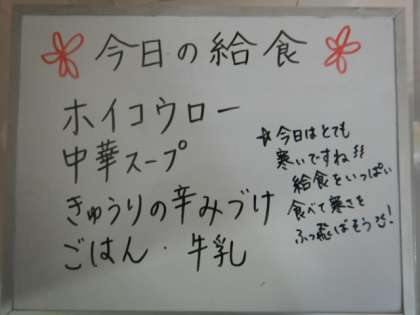 今日の給食
ホイコウロー
中華スープ
きゅうりの辛みづけ
ごはん・牛乳
☆今日はとても
寒いですね!!
給食をいっぱい
食べて寒さを
ふっ飛ばそう!